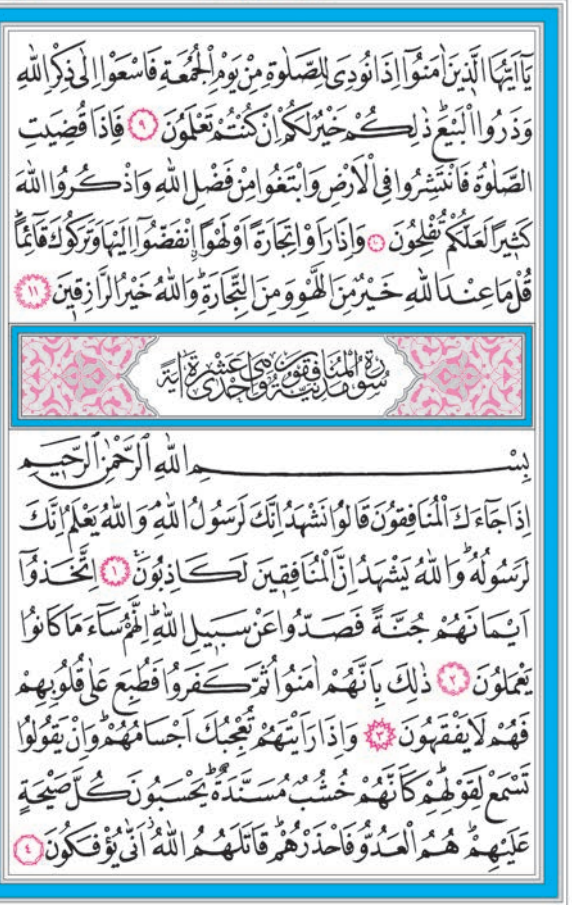 يَٓا اَيُّهَا الَّذ۪ينَ اٰمَنُٓوا اِذَا نُودِيَ لِلصَّلٰوةِ مِنْ يَوْمِ الْجُمُعَةِ فَاسْعَوْا اِلٰى ذِكْرِ اللّٰهِ
وَذَرُوا الْبَيْعَۜ ذٰلِكُمْ خَيْرٌ لَكُمْ اِنْ كُنْتُمْ تَعْلَمُونَ ٩ فَاِذَا قُضِيَتِ
الصَّلٰوةُ فَانْتَشِرُوا فِي الْاَرْضِ وَابْتَغُوا مِنْ فَضْلِ اللّٰهِ وَاذْكُرُوا اللّٰهَ
كَث۪يرًا لَعَلَّكُمْ تُفْلِحُونَ ١٠ وَاِذَا رَاَوْا تِجَارَةً اَوْ لَهْوًاۨ انْفَضُّٓوا اِلَيْهَا وَتَرَكُوكَ قَٓائِمًاۜ
قُلْ مَا عِنْدَ اللّٰهِ خَيْرٌ مِنَ اللَّهْوِ وَمِنَ التِّجَارَةِۜ وَاللّٰهُ خَيْرُ الرَّازِق۪ينَ ١١
سُورَةُ الْمُنَافِقُونَ مَدَنِيَّةٌ وَهِيَ اِحْدٰى عَشْرَةَ اٰيَةً
بِسْمِ اللّٰهِ الرَّحْمٰنِ الرَّح۪يمِ
اِذَا جَٓاءَكَ الْمُنَافِقُونَ قَالُوا نَشْهَدُ اِنَّكَ لَرَسُولُ اللّٰهِۢ وَاللّٰهُ يَعْلَمُ اِنَّكَ
لَرَسُولُهُۜ وَاللّٰهُ يَشْهَدُ اِنَّ الْمُنَافِق۪ينَ لَكَاذِبُونَۚ ١ اِتَّخَذُٓوا
اَيْمَانَهُمْ جُنَّةً فَصَدُّوا عَنْ سَب۪يلِ اللّٰهِۜ اِنَّهُمْ سَٓاءَ مَا كَانُوا
يَعْمَلُونَ ٢ ذٰلِكَ بِاَنَّهُمْ اٰمَنُوا ثُمَّ كَفَرُوا فَطُبِعَ عَلٰى قُلُوبِهِمْ
فَهُمْ لَا يَفْقَهُونَ ٣ وَاِذَا رَاَيْتَهُمْ تُعْجِبُكَ اَجْسَامُهُمْۜ وَاِنْ يَقُولُوا
تَسْمَعْ لِقَوْلِهِمْۜ كَاَنَّهُمْ خُشُبٌ مُسَنَّدَةٌۜ يَحْسَبُونَ كُلَّ صَيْحَةٍ
عَلَيْهِمْۜ هُمُ الْعَدُوُّ فَاحْذَرْهُمْۜ قَاتَلَهُمُ اللّٰهُۘ اَنّٰى يُؤْفَكُونَ ٤